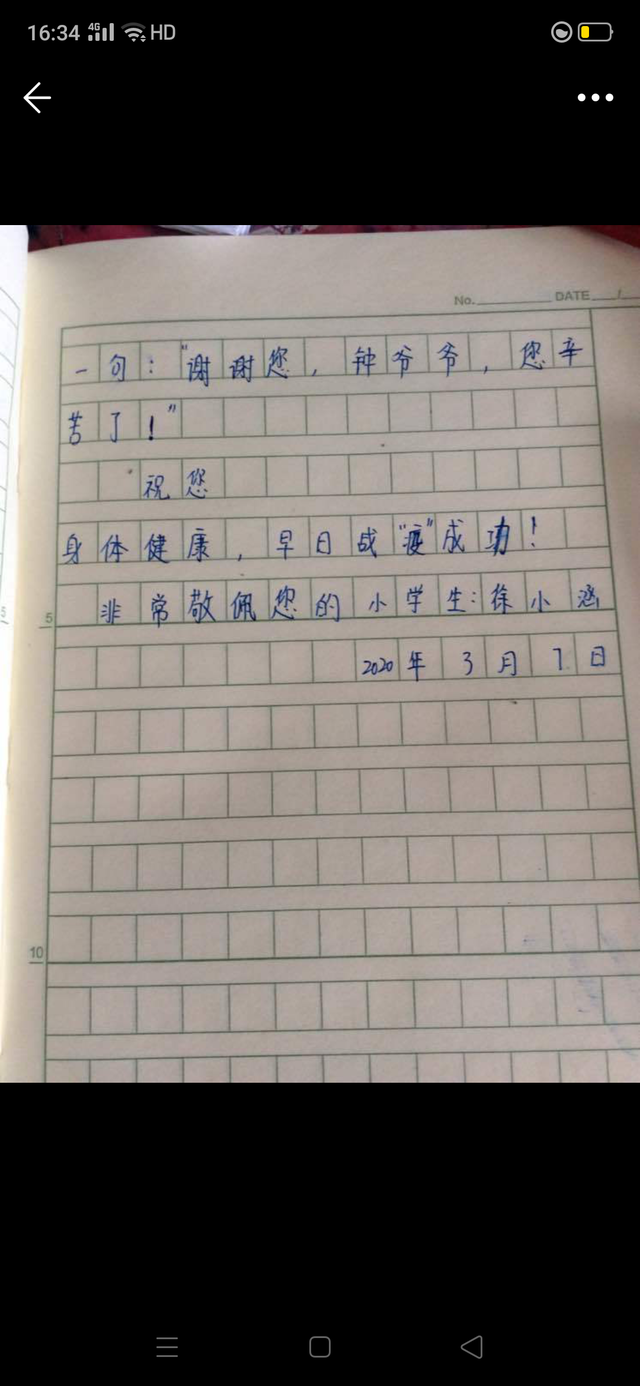 16:34 4G HD
No. DATE /
一句："谢谢您，钟爷爷，您辛
苦了！"
祝您
身体健康，早日战"疫"成功！
5
5
非常敬佩您的小学生：徐小涵
2020年3月7日
10